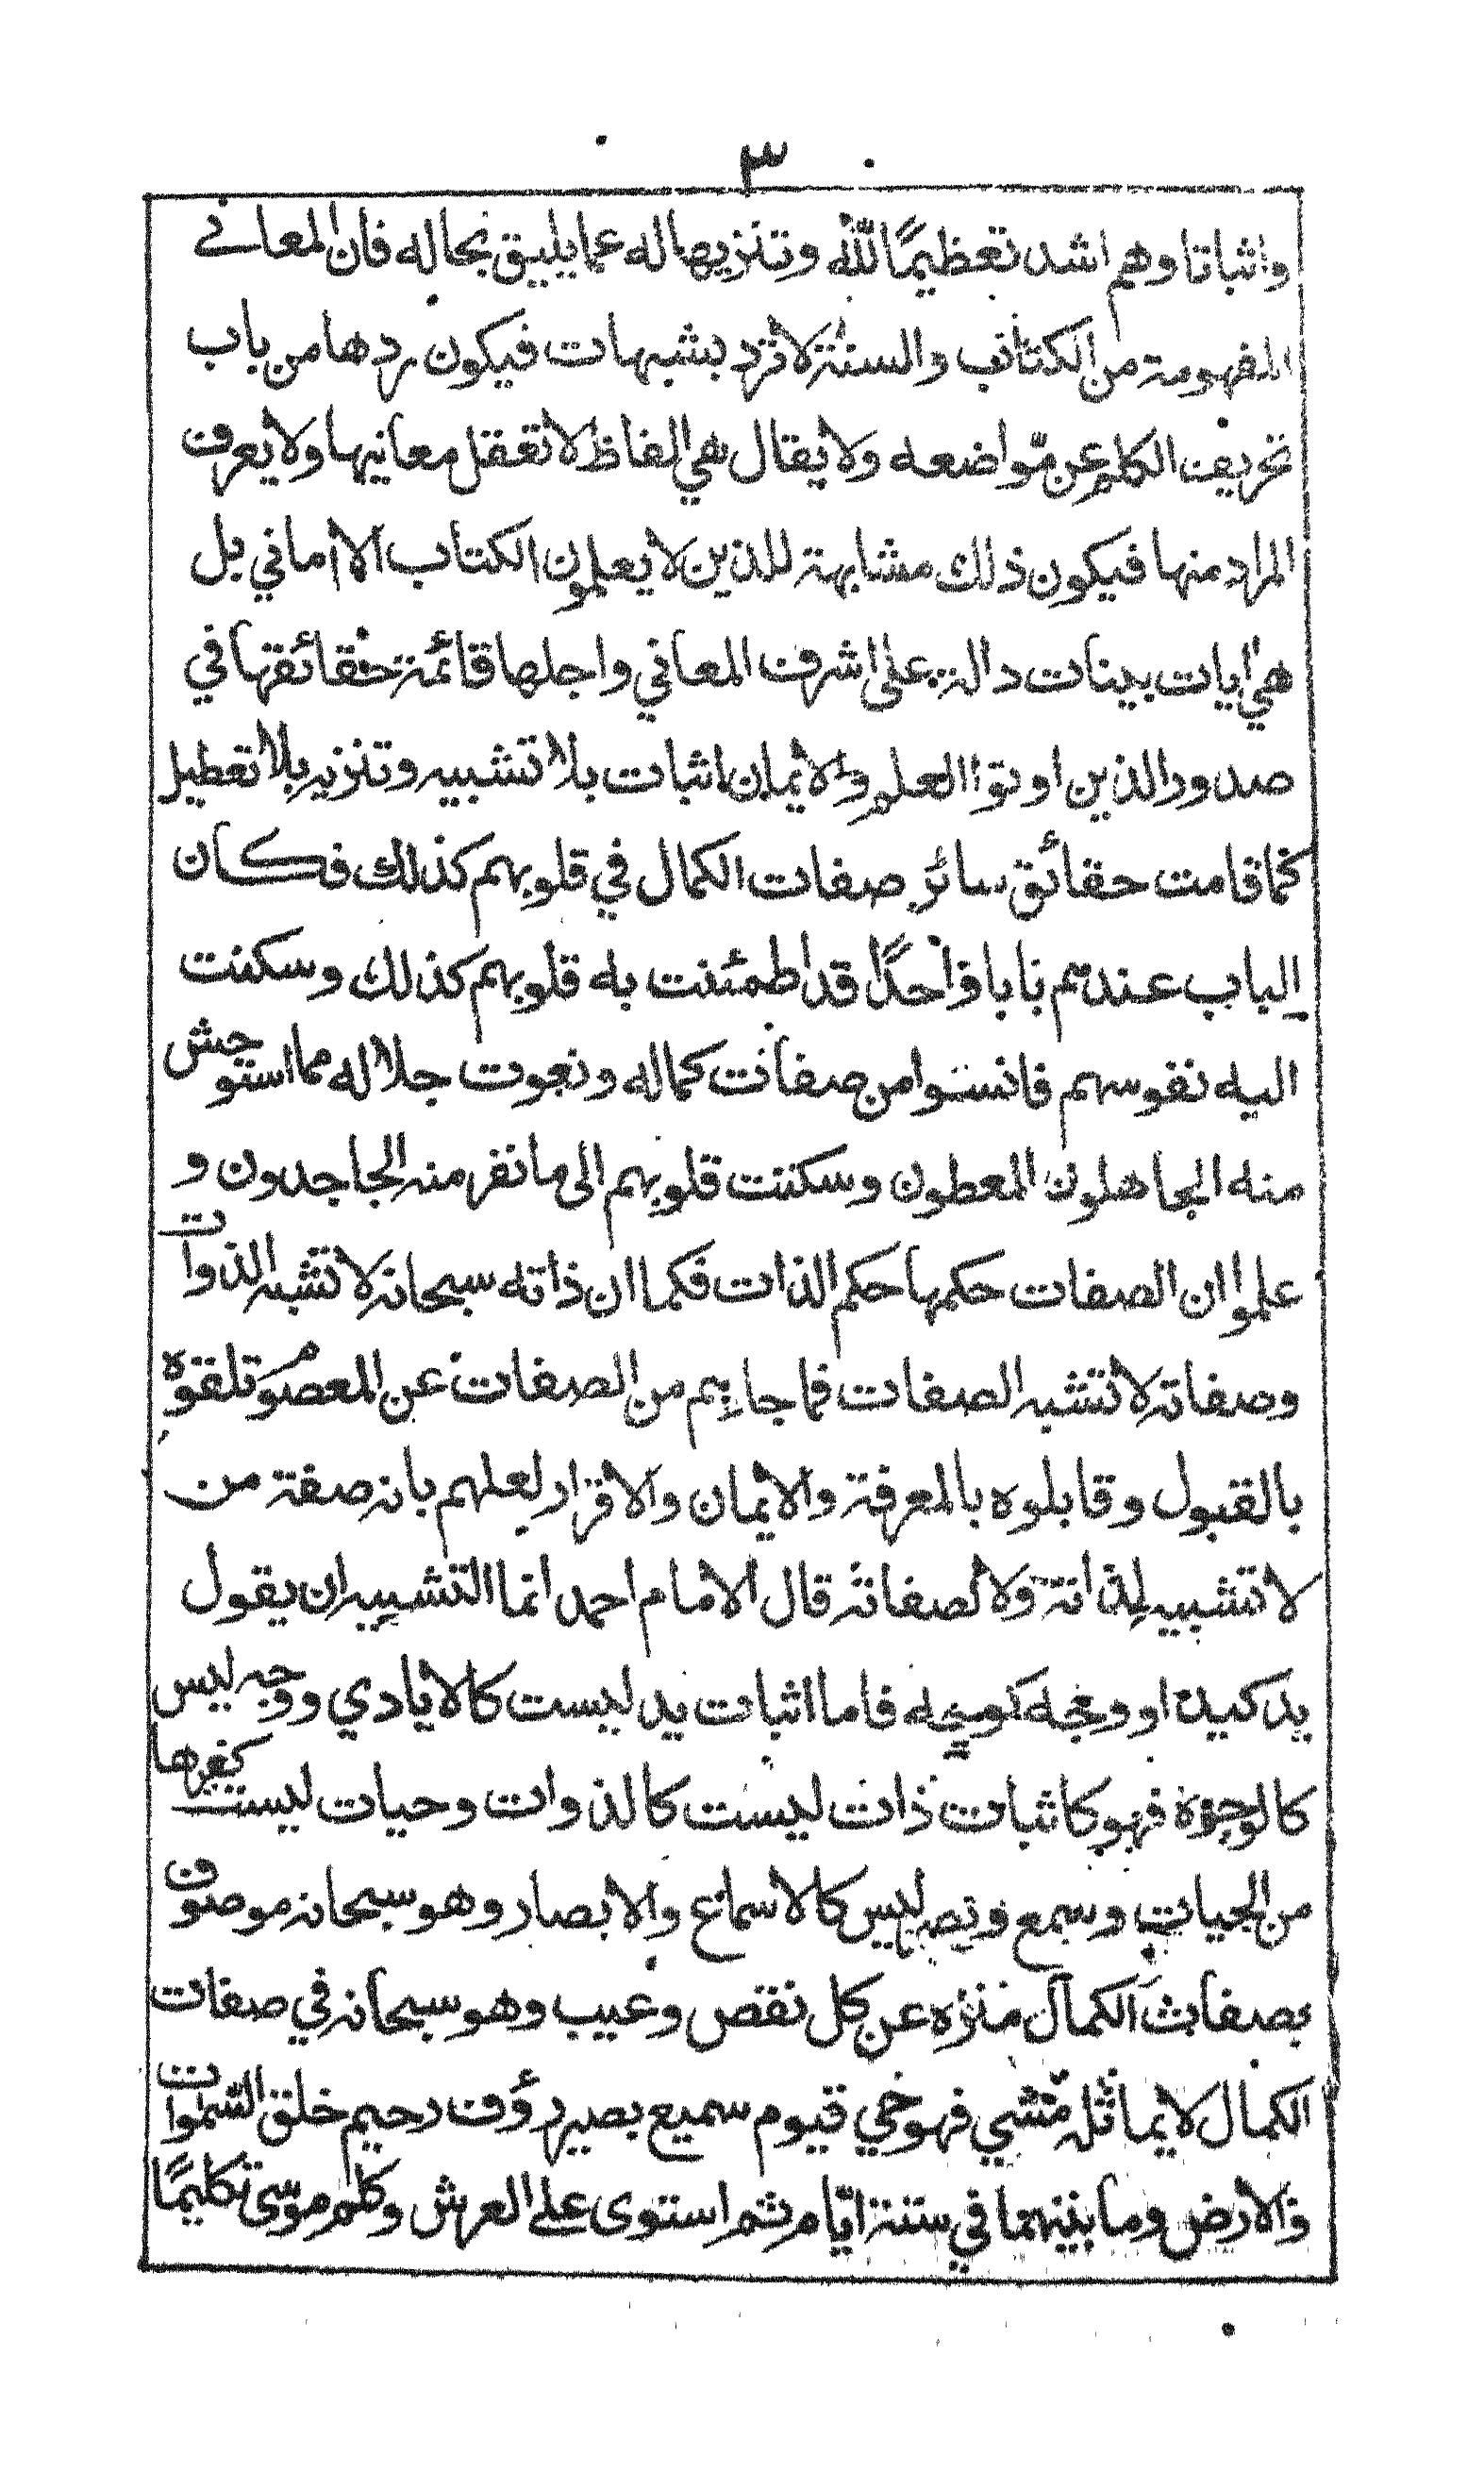 ٣
واثباتا وهم اشد تعظيمًا لله وتنزيها له عما يليق بجاله فان المعاني
المفهومة من الكتاب والسنة لا ترد بشبهات فيكون ردها من باب
تحريف الكلم عن مواضعه ولا يقال هي الفاظ لا تعقل معانيها ولا يعرف
المراد منها فيكون ذلك مشابهة للذين لا يعلمون الكتاب الا اماني بل
هي ايات بينات دالة على اشرف المعاني واجلها قائمة حقائقها في
صدور الذين اوتوا العلم والايمان اثبات بلا تشبيه وتنزيه بلا تعطيل
كما قامت حقائق سائر صفات الكمال في قلوبهم كذلك فكان
الباب عندهم بابا واحدًا قد اطمئنت به قلوبهم كذلك وسكنت
اليه نفوسهم فانستوا من صفات كماله ونعوت جلاله مما استوحش
منه الجاهلون المعطون وسكنت قلوبهم الى ما نفر منه الجاحدون و
علموا ان الصفات حكمها حكم الذات فكما ان ذاته سبحانه لا تشبه الذوات
وصفاته لا تشبه الصفات فما جاءهم من الصفات عن المعصوم تلقوه
بالقبول وقابلوه بالمعرفة والايمان والاقرار لعلهم بانه صفة من
لا تشبيه لذاته ولا لصفاته قال الامام احمد انما التشبيه ان يقول
يد كيد او وجه كوجه فاما اثبات يد ليست كالايادي ووجه ليس
كالوجوه فهو كاثبات ذات ليست كالذوات وحيات ليست كغيرها
من الحيات وسمع وبصر ليس كالاسماع والابصار وهو سبحانه موصوف
بصفات الكمال منزه عن كل نقص وعيب وهو سبحانه في صفات
الكمال لا يماثله شي فهو حي قيوم سميع بصير رؤف رحيم خلق السموات
والارض وما بينهما في ستة ايام ثم استوى على العرش وكلم موسى تكليمًا